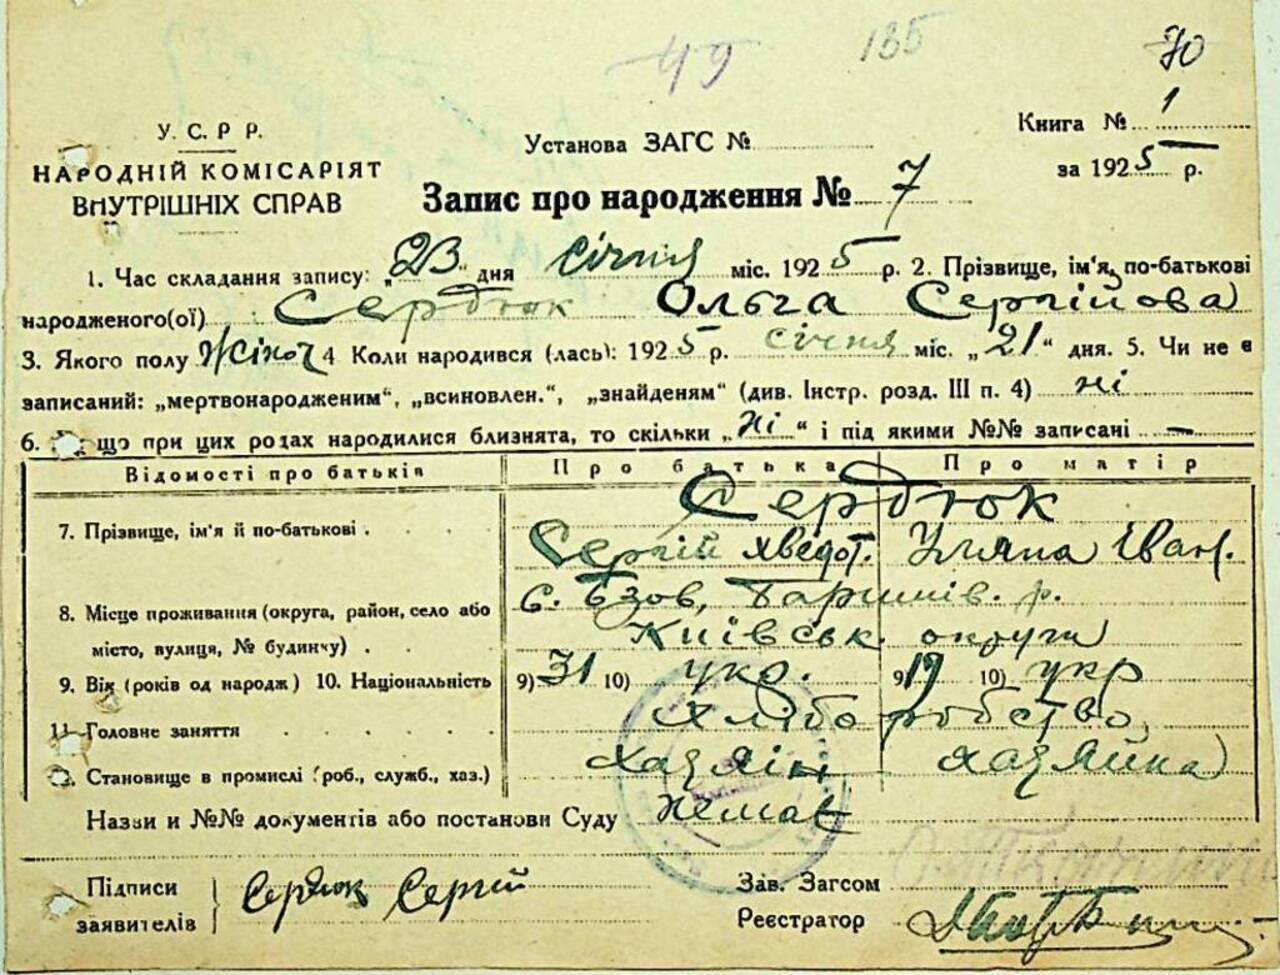 49 135 70
У. С. Р Р.
НАРОДНІЙ КОМІСАРІЯТ
ВНУТРІШНІХ СПРАВ
Установа ЗАГС №
Книга № 1
за 1925 р.
Запис про народження № 7
1. Час складання запису: „23“ дня січня міс. 1925 р. 2. Прізвище, ім'я, по-батькові
народженого(ої) Сердюк Ольга Сергійова
3. Якого полу Жіноч 4 Коли народився (лась): 1925 р. січня міс. „21“ дня. 5. Чи не є
записаний: „мертвонародженим“, „всиновлен.“, „знайденям“ (див. Інстр. розд. III п. 4) ні
6. що при цих родах народилися близнята, то скільки „Ні“ і під якими №№ записані —
Відомості про батьків Про батька Про матір
Сердюк
7. Прізвище, ім'я й по-батькові Сергій Хведот. Уляна Іван.
8. Місце проживання (округа, район, село або с. Бзов, Баришів. р.
місто, вулиця, № будинку) Київськ. округи
9. Вік (років од народж) 10. Національність 9) 31 10) укр. 9) 19 10) укр
11. Головне заняття хліборобство
Становище в промислі (роб., служб., хаз.) хазяін хазяйка
Назви и №№ документів або постанови Суду Немає
Підписи
заявителів
Сердюк Сергій
Зав. Загсом
Реєстратор